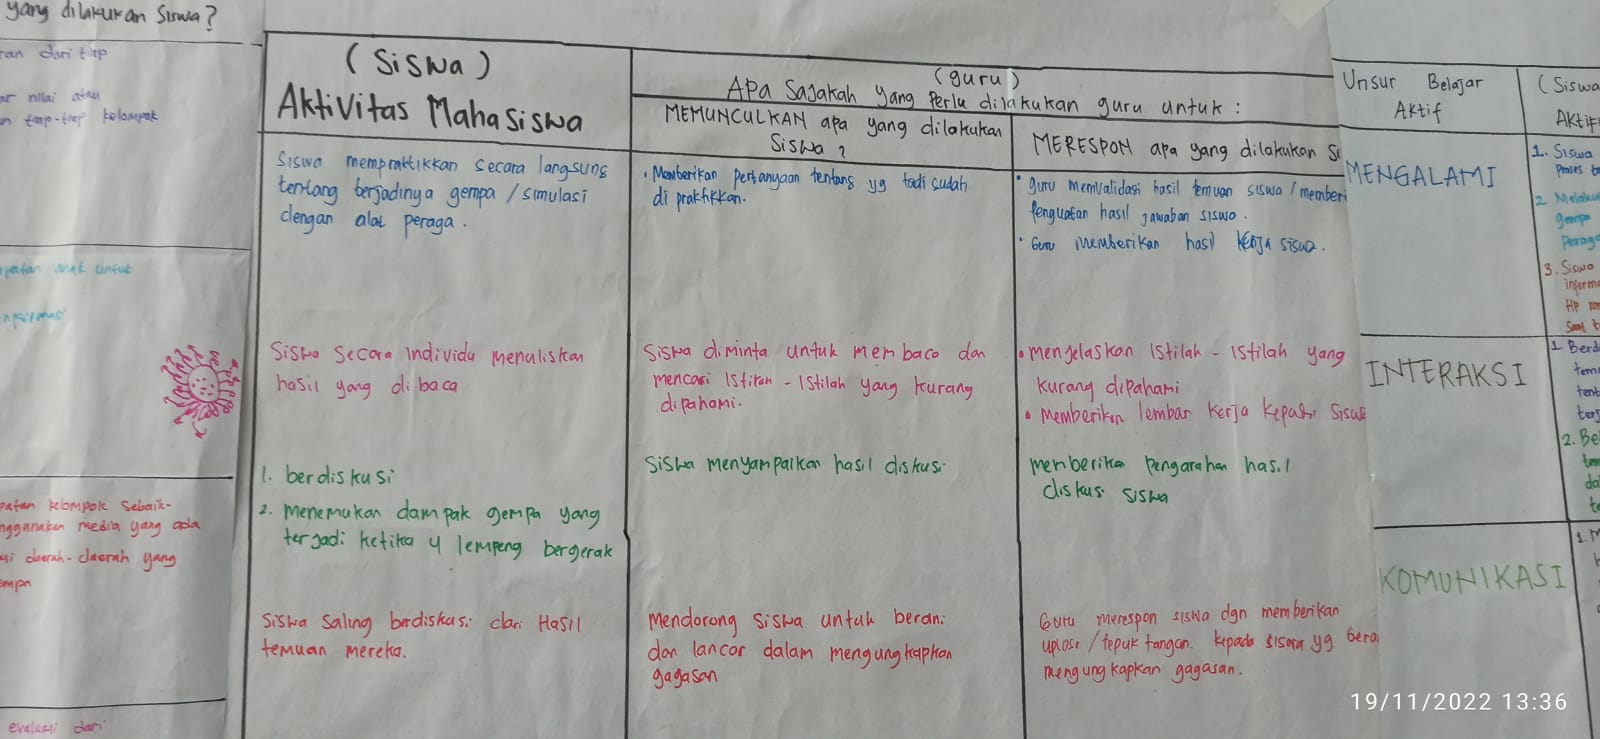 yang dilakukan Siswa?
ran dari tiap
ar nilai atau
n tiap-tiap kelompok
anak untuk
patan kelompok Sebaik-
nggunakan media yang ada
si daerah-daerah yang
empa
evaluasi dari
(Siswa)
Aktivitas Mahasiswa
(guru)
Apa Sajakah yang Perlu dilakukan guru untuk :
MEMUNCULKAN apa yang dilakukan
Siswa ?
MERESPON apa yang dilakukan Si
Siswa mempraktikkan secara langsung
tentang terjadinya gempa / simulasi
dengan alat peraga.
• Memberikan pertanyaan tentang yg tadi sudah
di praktikkan.
• guru memvalidasi hasil temuan siswa / memberi
penguatan hasil jawaban siswa.
• Guru memberikan hasil kerja siswa.
Siswa Secara Individu menuliskan
hasil yang di baca
Siswa diminta untuk membaca dan
mencari Istilah - Istilah yang kurang
dipahami.
• menjelaskan Istilah - Istilah yang
kurang dipahami
• memberikan lembar kerja kepada siswa
1. berdiskusi
2. menemukan dampak gempa yang
terjadi ketika 4 lempeng bergerak
Siswa menyampaikan hasil diskusi
memberika pengarahan hasil
diskusi siswa
Siswa saling berdiskusi dari Hasil
temuan mereka.
Mendorong Siswa untuk berani
dan lancar dalam mengungkapkan
gagasan
Guru merespon siswa dgn memberikan
uplose / tepuk tangan. kepada siswa yg bera
mengungkapkan gagasan.
Unsur Belajar
Aktif
MENGALAMI
INTERAKSI
KOMUNIKASI
(Siswa
Aktif
1. Siswa
Proses
2. Melaku
gempa
Peraga
3. Siswa
inform
HP
Saat
1. Berd
tem
tent
terj
2. Be
tem
da
te
1. M
19/11/2022 13:36